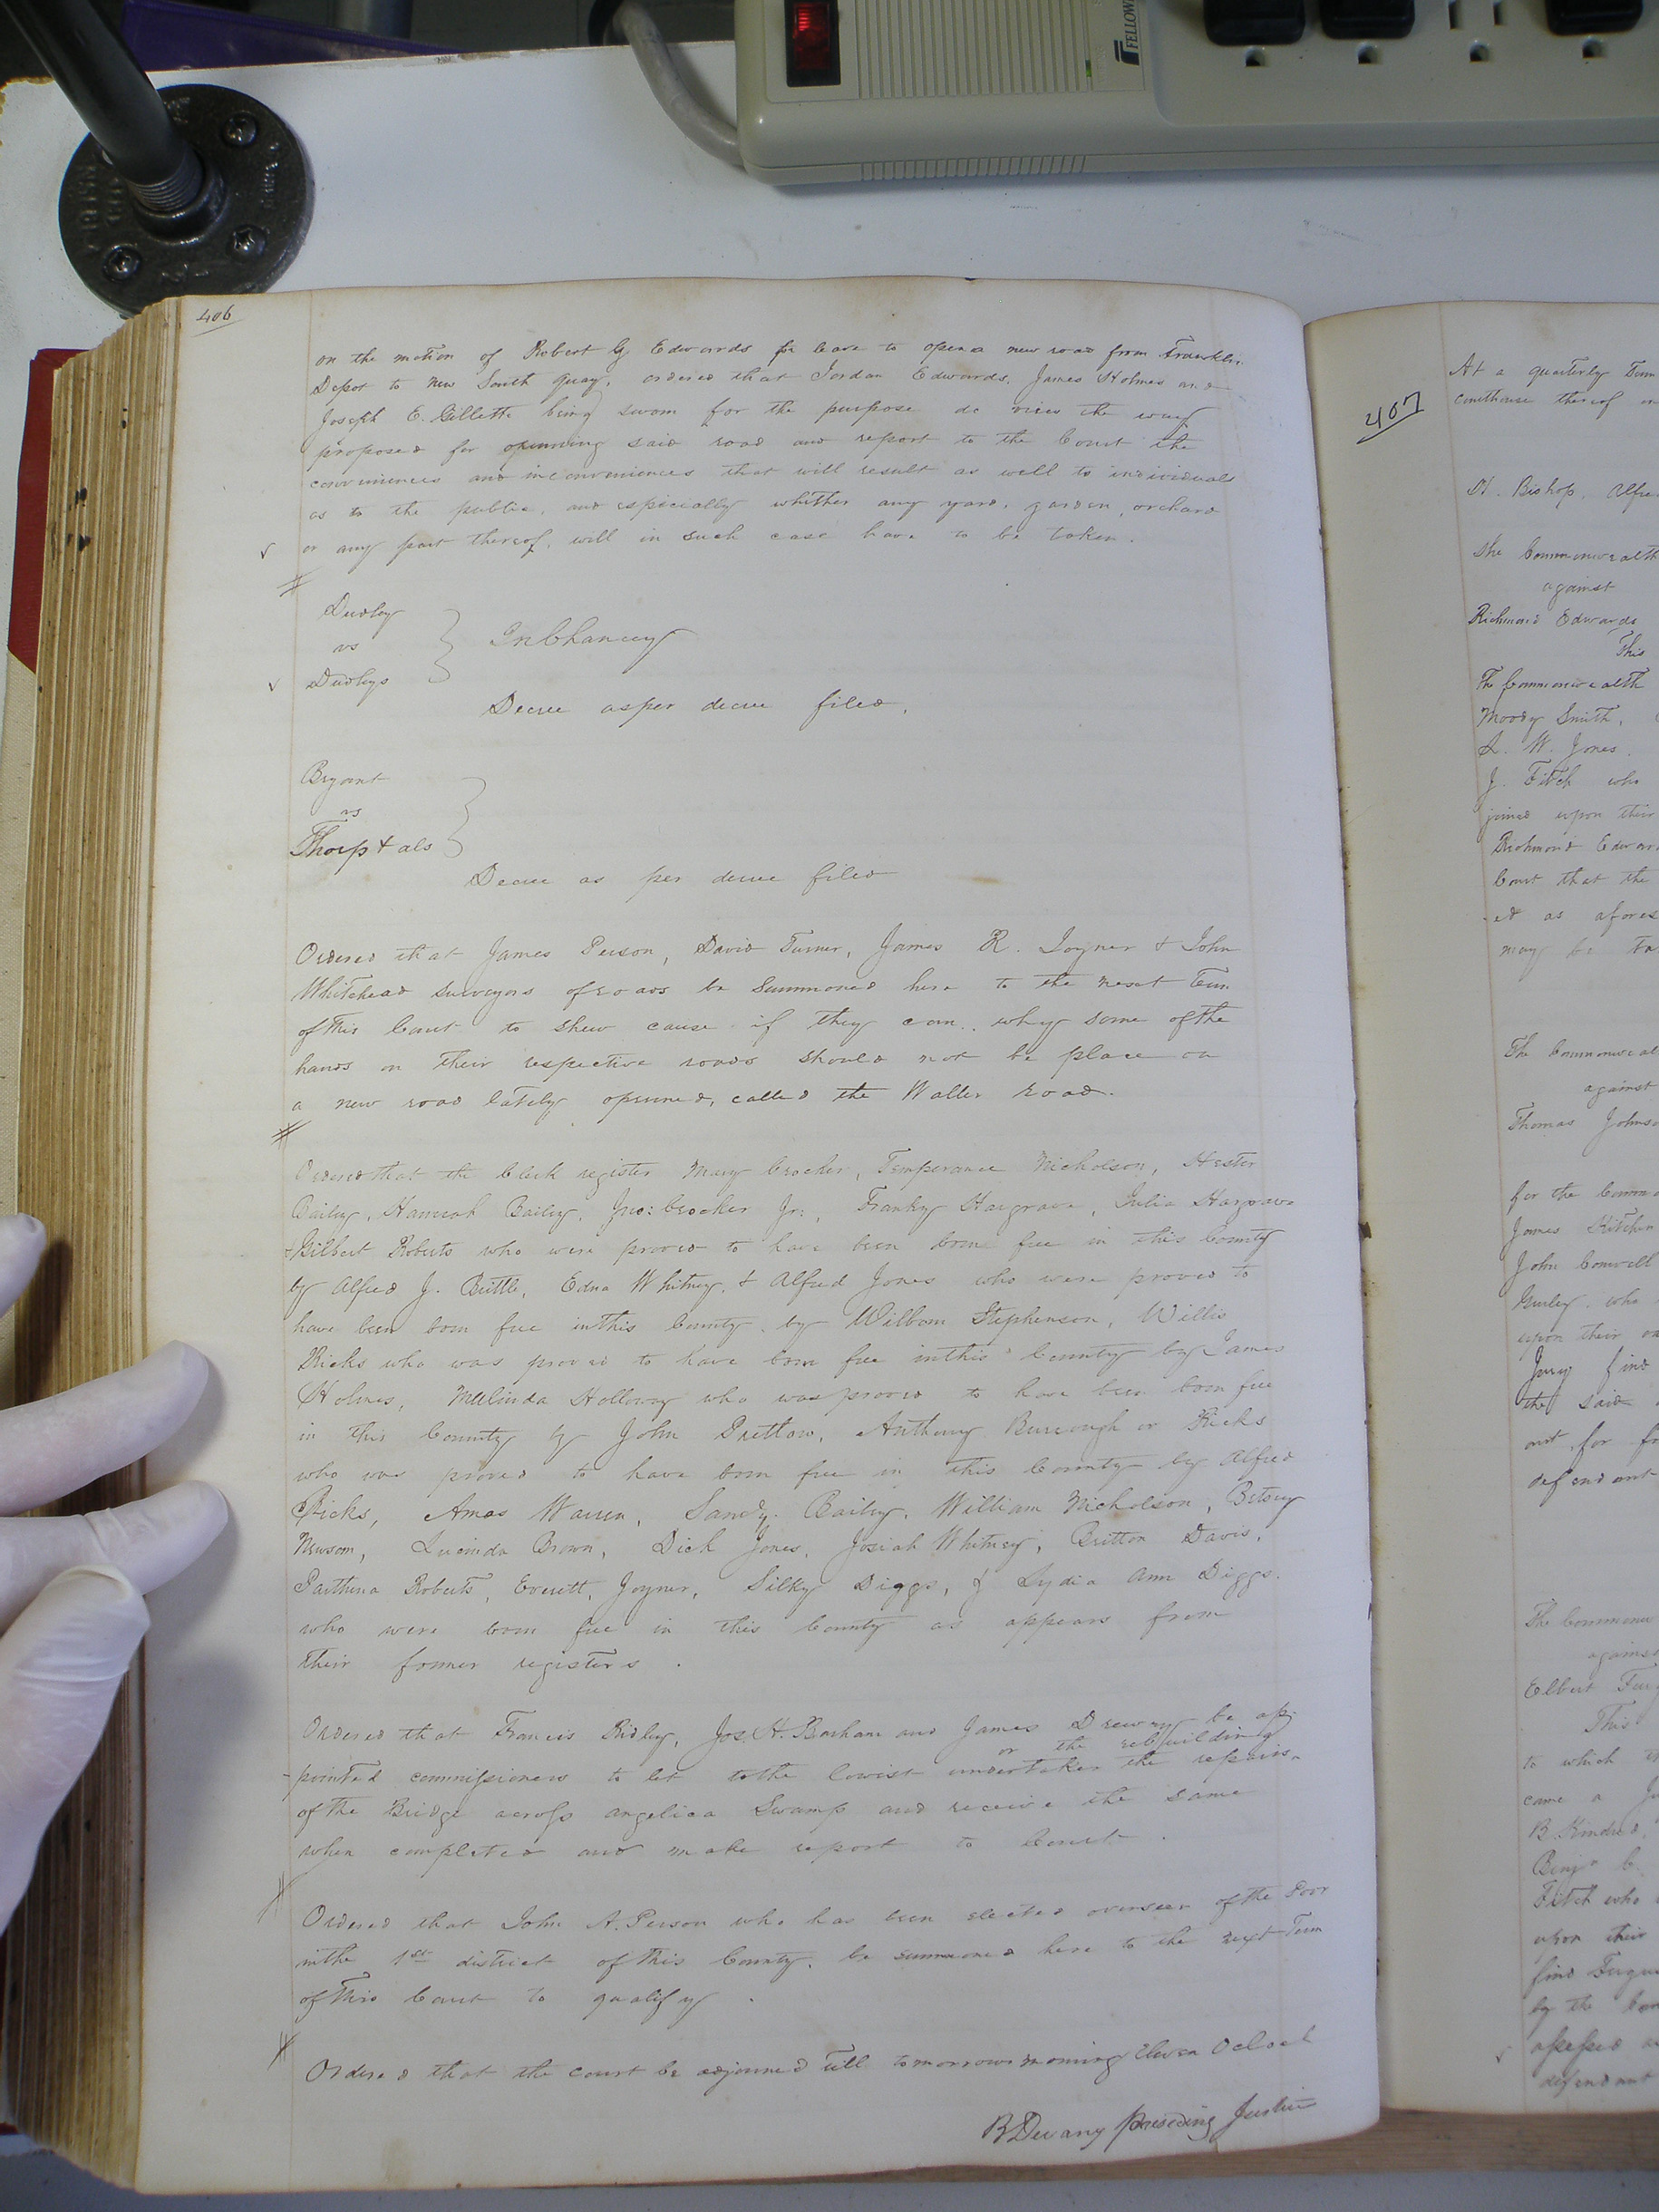 FELLOW
406
on the motion of Robert G Edwards for leave to open a new road from Franklin
Depot to New South quay, ordered that Jordan Edwards, James Holmes and
Joseph E. Gillette being sworn for the purpose do view the way
proposed for openning said road and report to the Court the
conveniences and inconveniences that will result as well to individuals
as to the public, and especially whether any yard, garden, orchard
or any part thereof, will in such case have to be taken.
Dudley
vs
Dudleys
In Chancery
Decree as per decree filed,
Bryant
vs
Thorp & als
Decree as per decree filed
Ordered that James Person, David Turner, James R. Joyner & John
Whitehead surveyors of roads be summoned here to the next Term
of this Court to shew cause if they can.. why some of the
hands on their respective roads should not be place on
a new road lately openned, called the Waller road.
Ordered that the Clerk register Mary Crocker, Temperance Nicholson, Hester
Bailey, Hannah Bailey, Jno: Crocker Jr:, Franky Hargrave, Julia Hargrave
& Gilbert Roberts who were proved to have been born free in this County
by Alfred J. Brittle, Edna Whitney, & Alfred Jones who were proved to
have been born free in this County by William Stephenson, Willis
Ricks who was proved to have born free in this County by James
Holmes, Melinda Holloway who was proved to have been born free
in this County by John Pretlow, Anthony Burrough or Ricks
who was proved to have born free in this County by Alfred
Ricks, Amos Warren, Sandy Bailey, William Nicholson, Betsey
Newsom, Lucinda Brown, Dick Jones, Josiah Whitney, Britton Davis,
Parthena Roberts, Everett Joyner, Silky Diggs, & Lydia Ann Diggs.
who were born free in this County as appears from
their former registers.
Ordered that Francis Ridley, Jos. H. Barham and James Drewry be ap-
or the rebuilding
-pointed commissioners to let to the lowest undertaker the repairs
of the Bridge across angelica Swamp and receive the same
when completed and make report to Court.
Ordered that John A. Person who has been elected overseer of the Poor
in the 1st district of this County, be summoned here to the next Term
of this Court to qualify.
Ordered that the court be adjourned till tomorrow morning Eleven Oclock
B Devany Presiding Justice
407
At a quarterly Term
courthouse thereof on
Bishop, Alfre
The Commonwealth
against
Richmond Edwards
This
The Commonwealth
Moody Smith,
W. Jones.
J. Fitch who
joined upon their
Richmond Edwar
Court that the
-ed as afores
may be ta
The Commonweal
against
Thomas Johnso
for the Commo
James Kitchen
John Comwell
Gurley, who
upon their oa
Jury find
the said
out, for fo
defendant
The Commonwe
against
Elbert Ferg
This
to which th
came a Ju
B. Kindred,
Benja C.
Fitch who
upon their
find Fergu
by the Com
assessed an
defendant